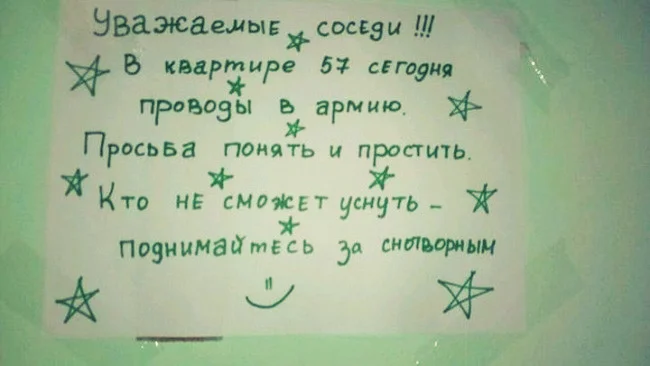 Уважаемые соседи !!!
В квартире 57 сегодня
проводы в армию.
Просьба понять и простить.
Кто не сможет уснуть –
поднимайтесь за снотворным